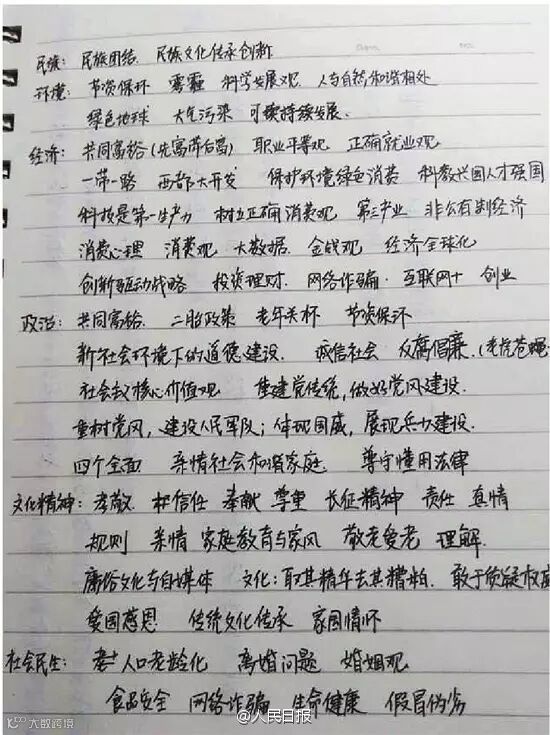 民族: 民族团结、民族文化传承创新
环境: 节资保环 雾霾 科学发展观 人与自然和谐相处
绿色地球 大气污染 可续持续发展.
经济: 共同富裕(先富带后富) 职业平等观 正确就业观
一带一路 西部大开发 保护环境绿色消费 科教兴国人才强国
科技是第一生产力 树立正确消费观 第三产业 非公有制经济
消费心理 消费观 大数据 金钱观 经济全球化
创新驱动战略 投资理财. 网络诈骗. 互联网+ 创业
政治: 共同富裕. 二胎政策 老年关怀 节资保环
新社会环境下的道德建设. 诚信社会 反腐倡廉.(老虎苍蝇
社会主义核心价值观 重建党传统,做好党风建设.
重树党风,建设人民军队;体现国威,展现兵力建设.
四个全面 亲情社会和谐家庭 尊守懂用法律
文化精神: 孝敬. 信任 奉献 尊重 长征精神 责任 真情
规则 亲情 家庭教育与家风 敬老爱老 理解.
庸俗文化与自媒体 文化:取其精华去其糟粕. 敢于质疑权威
爱国感恩 传统文化传承 家国情怀
社会民生: 人口老龄化 离婚问题 婚姻观
食品安全 网络诈骗 生命健康 假冒伪劣
@人民日报
大数跨境